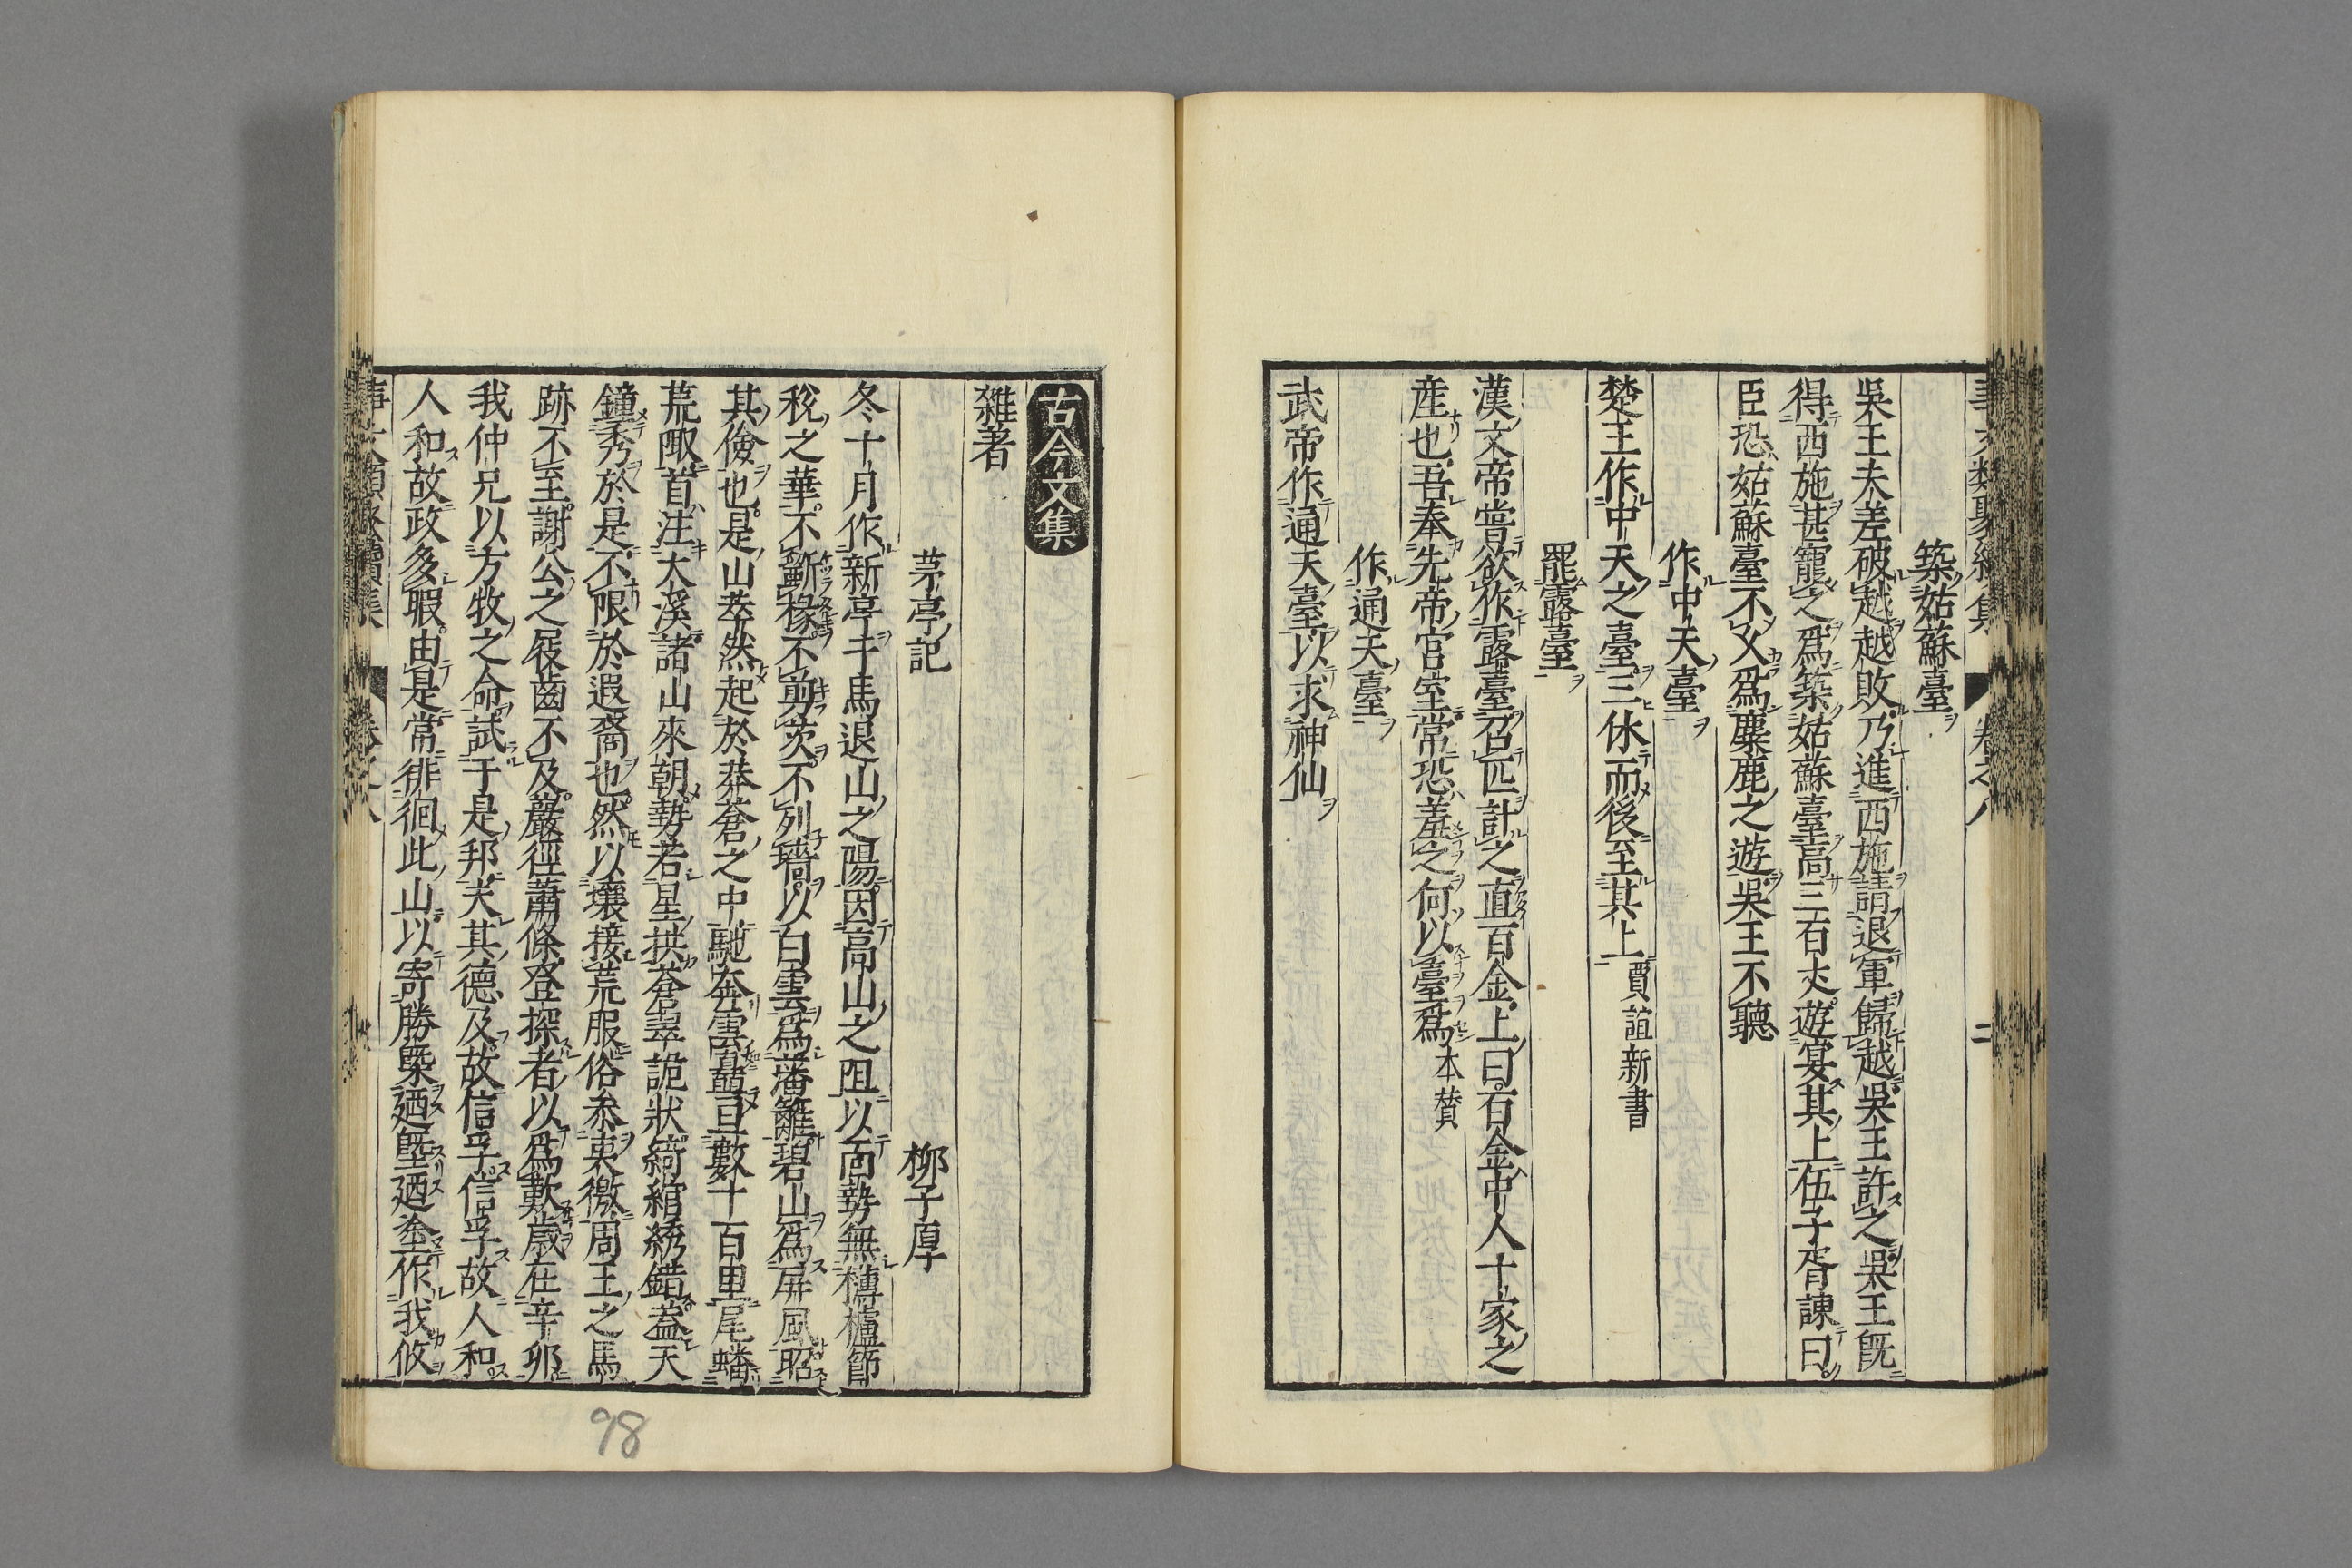 築姑蘇臺
吳王夫差破越越敗乃進西施請退軍歸越吳王許之吳王旣
得西施甚寵之爲築姑蘇臺高三百丈遊宴其上伍子胥諫曰
臣恐姑蘇臺不乆爲麋鹿之遊吳王不聽
作中天臺
楚王作中天之臺三休而後至其上賈誼新書
罷露臺
漢文帝嘗欲作露臺召匠計之直百金上曰百金中人十家之
産也吾奉先帝官室常恐羞之何以臺爲本贊
作通天臺
武帝作通天臺以求神仙
古今文集
雜著
茅亭記 柳子厚
冬十月作新亭于馬退山之陽因高山之阻以面勢無欂櫨節
梲之華不斵椽不剪茨不列墻以白雲爲藩籬碧山爲屏風昭
其儉也是山崒然起於莽蒼之中馳奔雲矗亘數十百里尾蟠
荒陬首注大溪諸山來朝勢若星拱蒼翠詭狀綺綰綉錯蓋天
鐘秀於是不限於遐裔也然以壤接荒服俗叅夷徼周王之馬
跡不至謝公之屐齒不及巖徑蕭條登探者以爲歎歲在辛卯
我仲兄以方牧之命試于是邦夫其德及故信孚信孚故人和
人和故政多暇由是常徘徊此山以寄勝槩廼塈廼塗作我攸
卷之八
98